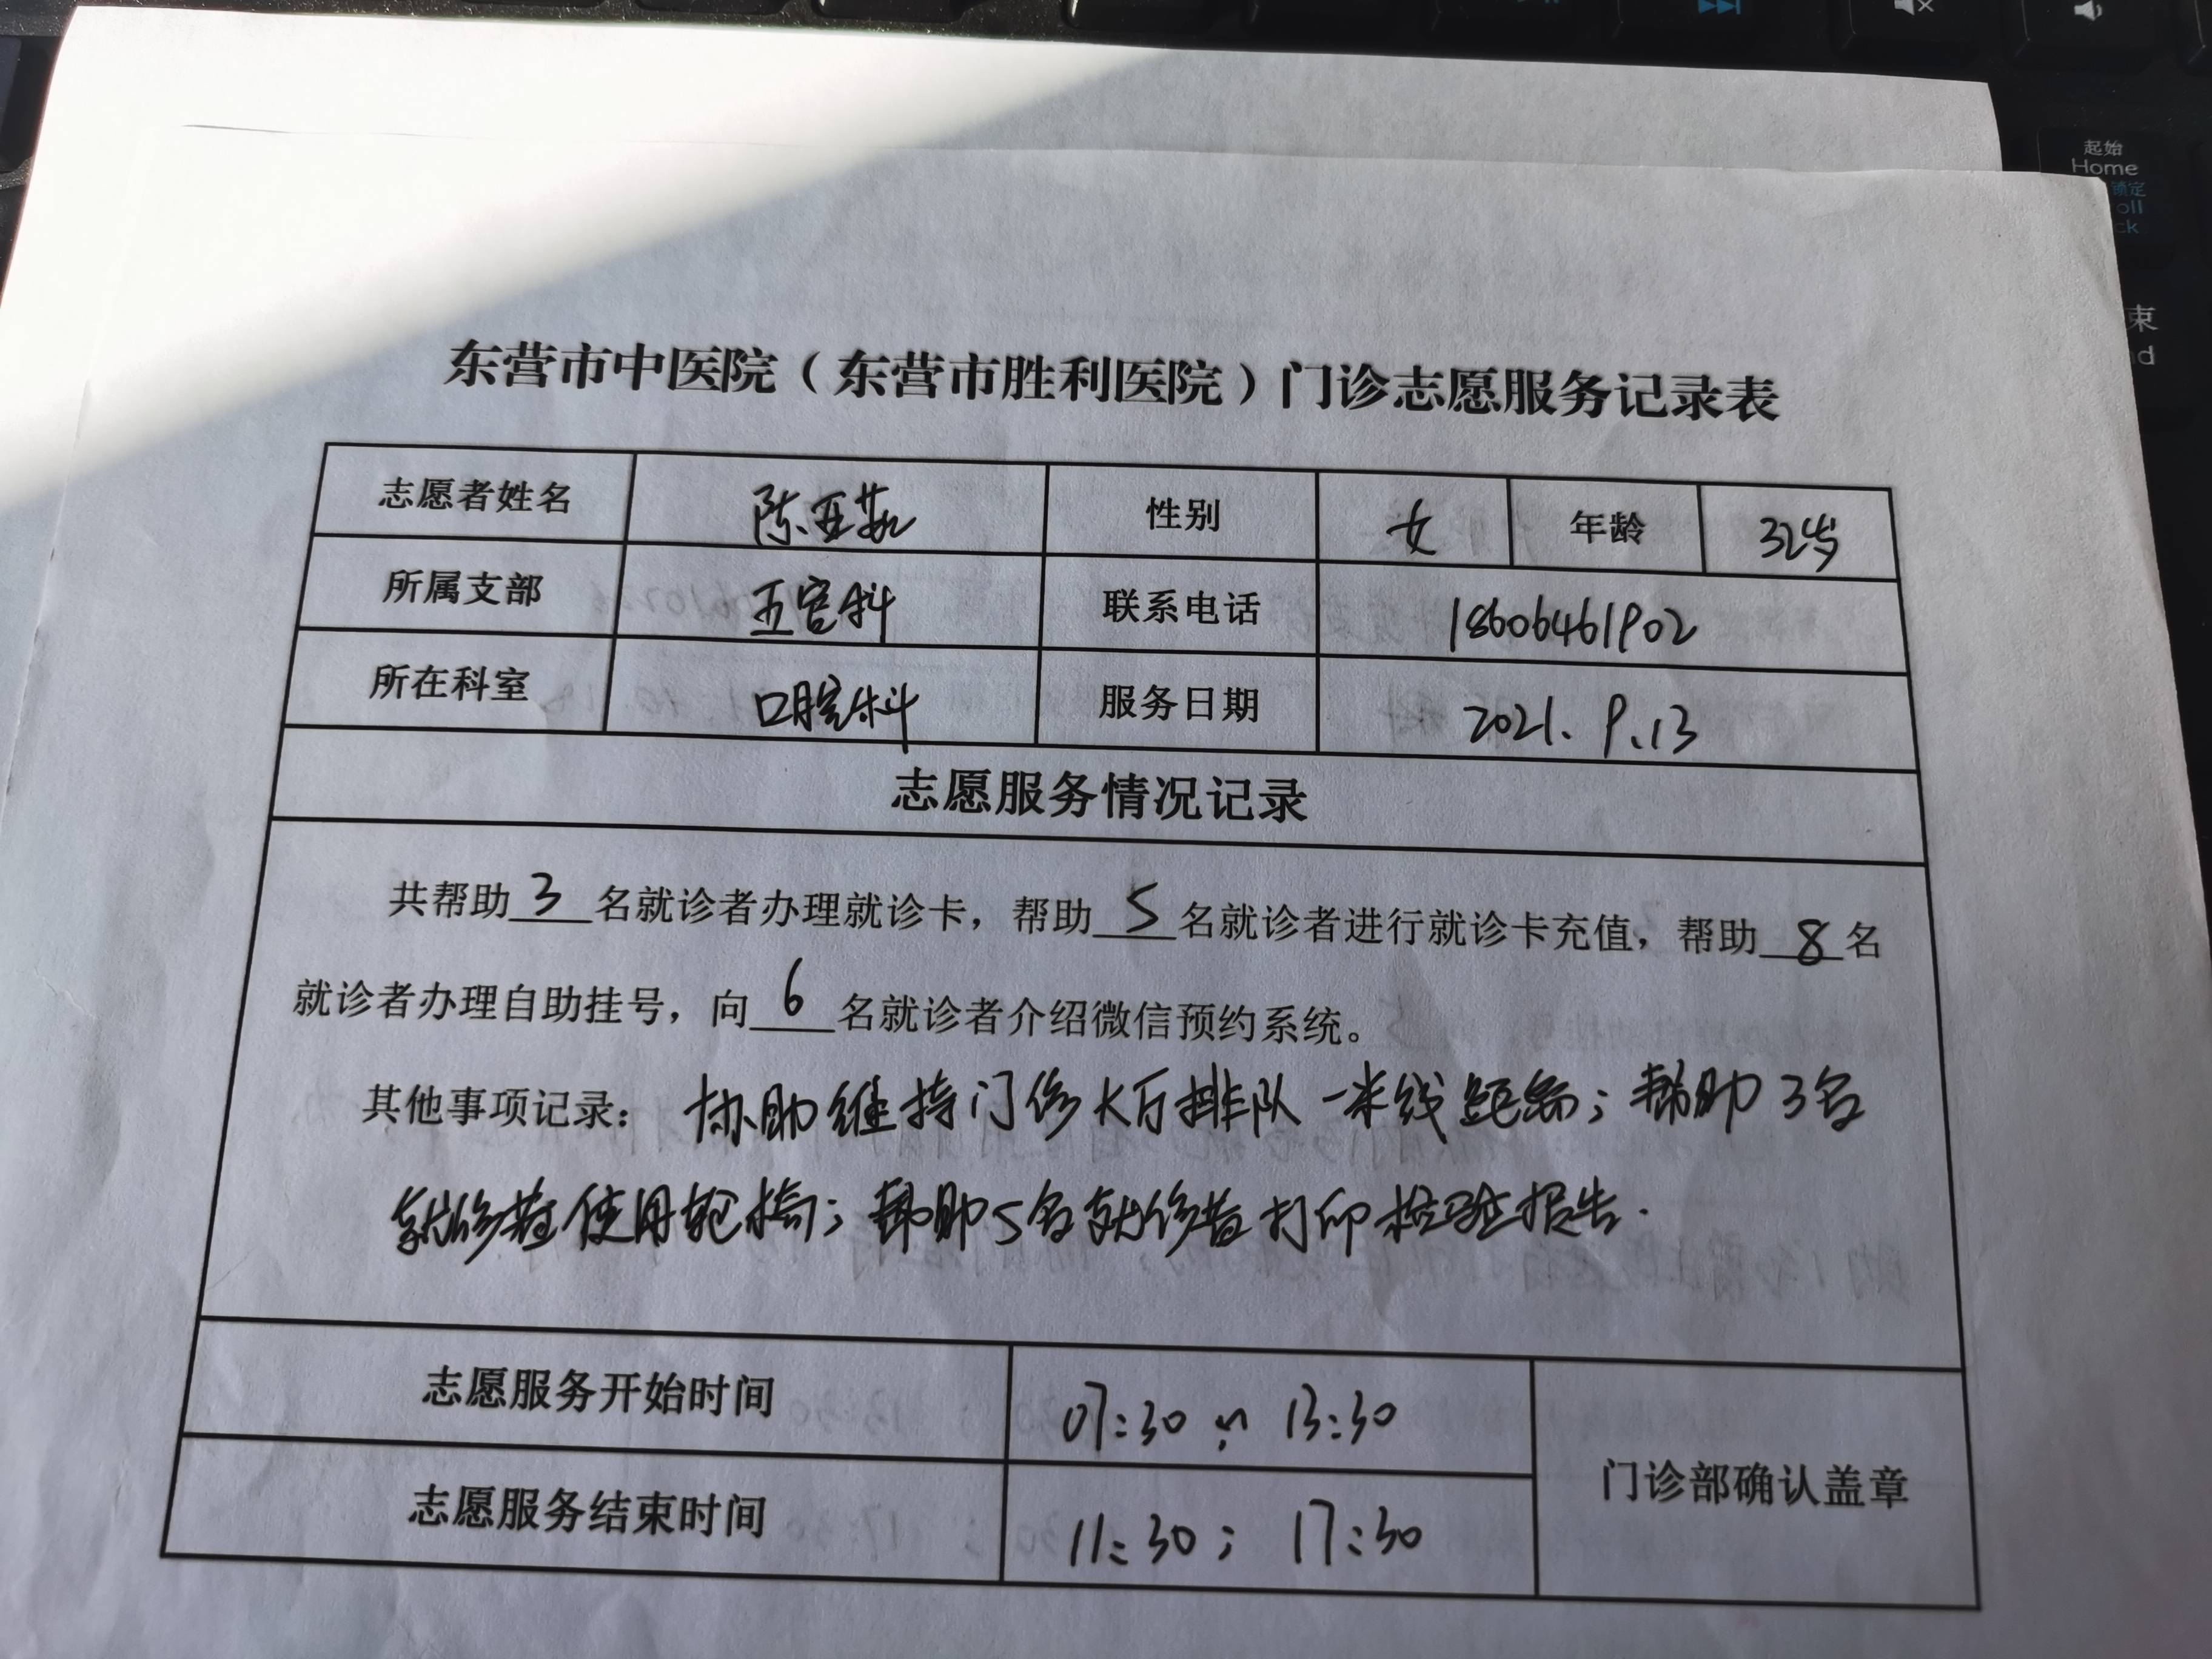 起始
Home
锁定
oll
ck
束
nd
东营市中医院（东营市胜利医院）门诊志愿服务记录表
志愿者姓名 陈亚茹 性别 女 年龄 32岁
所属支部 五官科 联系电话 18606461902
所在科室 口腔科 服务日期 2021.9.13
志愿服务情况记录
共帮助 3 名就诊者办理就诊卡，帮助 5 名就诊者进行就诊卡充值，帮助 8 名
就诊者办理自助挂号，向 6 名就诊者介绍微信预约系统。
其他事项记录：协助维持门诊大厅排队一米线距离；帮助3名
就诊者使用轮椅；帮助5名就诊者打印检验报告.
志愿服务开始时间 07:30 ; 13:30
门诊部确认盖章
志愿服务结束时间 11:30; 17:30